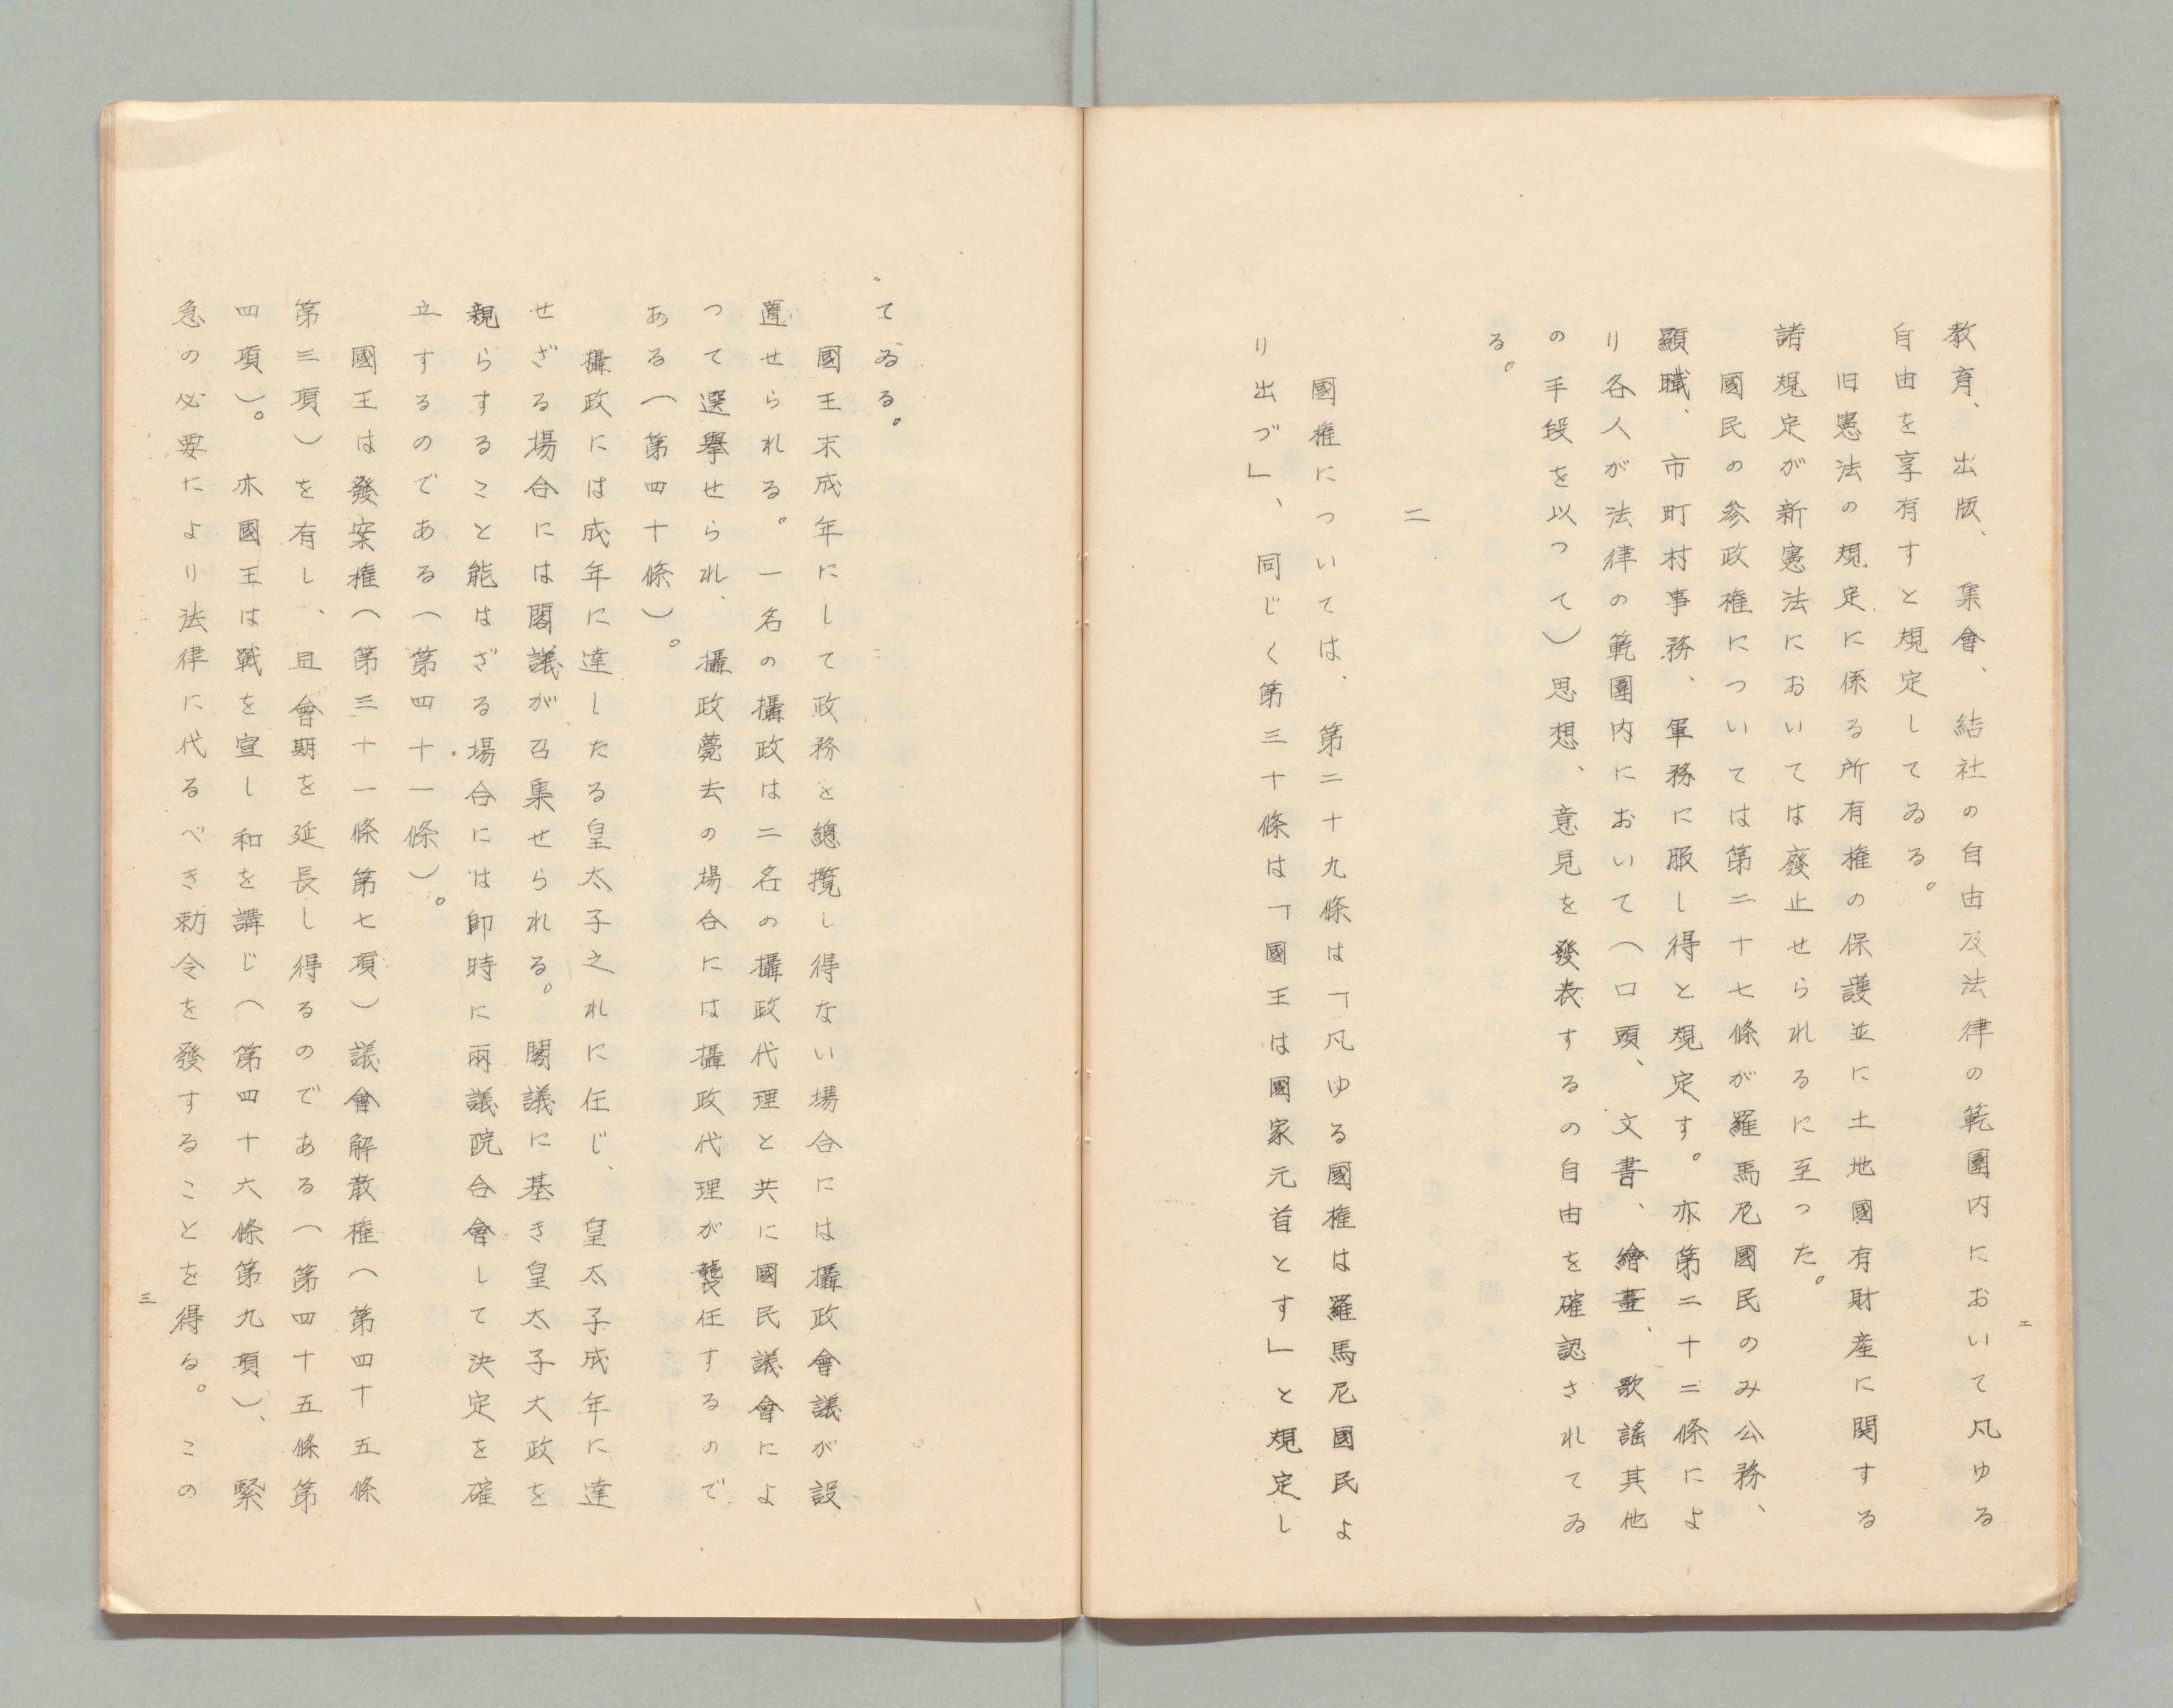 教育、出版、集會、結社の自由及法律の範圍内において凡ゆる
自由を享有すと規定してゐる。
旧憲法の規定に係る所有権の保護並に土地國有財産に関する
諸規定が新憲法においては廢止せられるに至った。
國民の参政権については第二十七條が羅馬尼國民のみ公務、
顯職、市町村事務、軍務に服し得と規定す。亦第二十二條によ
り各人が法律の範圍内において（口頭、文書、繪畫、歌謠其他
の手段を以つて）思想、意見を發表するの自由を確認されてゐ
る。
二
國権については、第二十九條は「凡ゆる國権は羅馬尼國民よ
り出づ」、同じく第三十條は「國王は國家元首とす」と規定し
二
てゐる。
國王末成年にして政務を總攬し得ない場合には攝政會議が設
置せられる。一名の攝政は二名の攝政代理と共に國民議會によ
つて選擧せられ、攝政薨去の場合には攝政代理が襲任するので
ある（第四十條）。
攝政には成年に達したる皇太子之れに任じ、皇太子成年に達
せざる場合には閣議が召集せられる。閣議に基き皇太子大政を
親らすること能はざる場合には即時に兩議院合會して決定を確
立するのである（第四十一條）。
國王は發案権（第三十一條第七項）議會解散権（第四十五條
第三項）を有し、且會期を延長し得るのである（第四十五條第
四項）。亦國王は戰を宣し和を講じ（第四十六條第九項）、緊
急の必要により法律に代るべき勅令を發することを得る。この
三